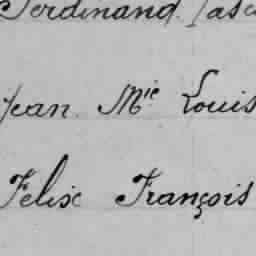 Ferdinand Pasc
Jean Mie Louis
Felix François